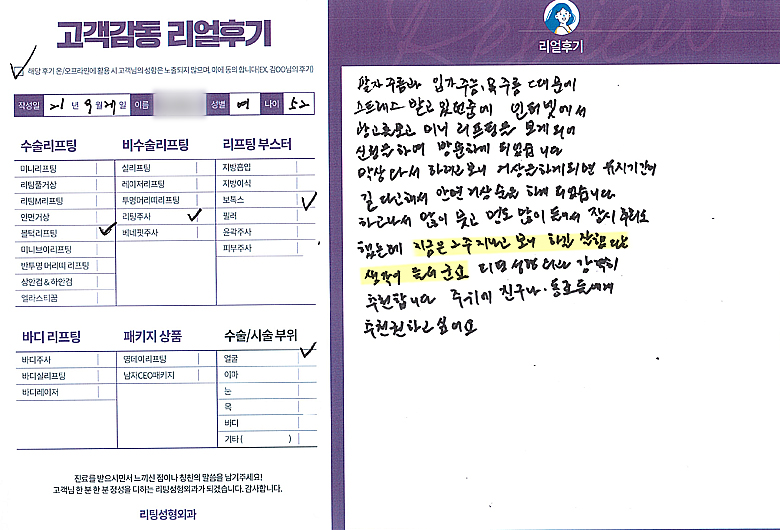 고객감동 리얼후기
해당 후기 온/오프라인에 활용 시 고객님의 성함은 노출되지 않으며, 이에 동의 합니다(EX. 김OO님의 후기)
작성일 21년 9월 29일 이름 성별 여 나이 52
수술리프팅
미니리프팅
리팅풀거상
리팅M리프팅
안면거상
볼턱리프팅
미니브이리프팅
반투명 머리띠 리프팅
상안검 & 하안검
얼라스티꿈
비수술리프팅
실리프팅
레이저리프팅
투명머리띠리프팅
리팅주사
베네핏주사
리프팅 부스터
지방흡입
지방이식
보톡스
필러
윤곽주사
피부주사
바디 리프팅
바디주사
바디실리프팅
바디레이저
패키지 상품
명데이리프팅
남자CEO패키지
수술/시술 부위
얼굴
이마
눈
목
바디
기타 ( )
진료를 받으시면서 느끼신 점이나 칭찬의 말씀을 남겨주세요!
고객님 한 분 한 분 정성을 다하는 리팅성형외과가 되겠습니다. 감사합니다.
리팅성형외과
Review
리얼후기
팔자주름과 입가주름, 목주름 때문에
스트레스 받고 있던중에 인터넷에서
광고를보고 미니 리프팅을 보게되어
신청을하여 방문하게 되었습니다
막상 와서 하려고보니 거상을하게되면 유지기간이
길다고해서 안면거상술을 하게 되었습니다.
하고나서 많이 붓고 멍도 많이 들어서 잠시 후회도
했는데 지금은 2주 지나고 보니 하길 잘했다는
생각이 들더군요 리팅성형외과 강력히
추천합니다 주위에 친구나·동료들에게
추천권하고 싶어요